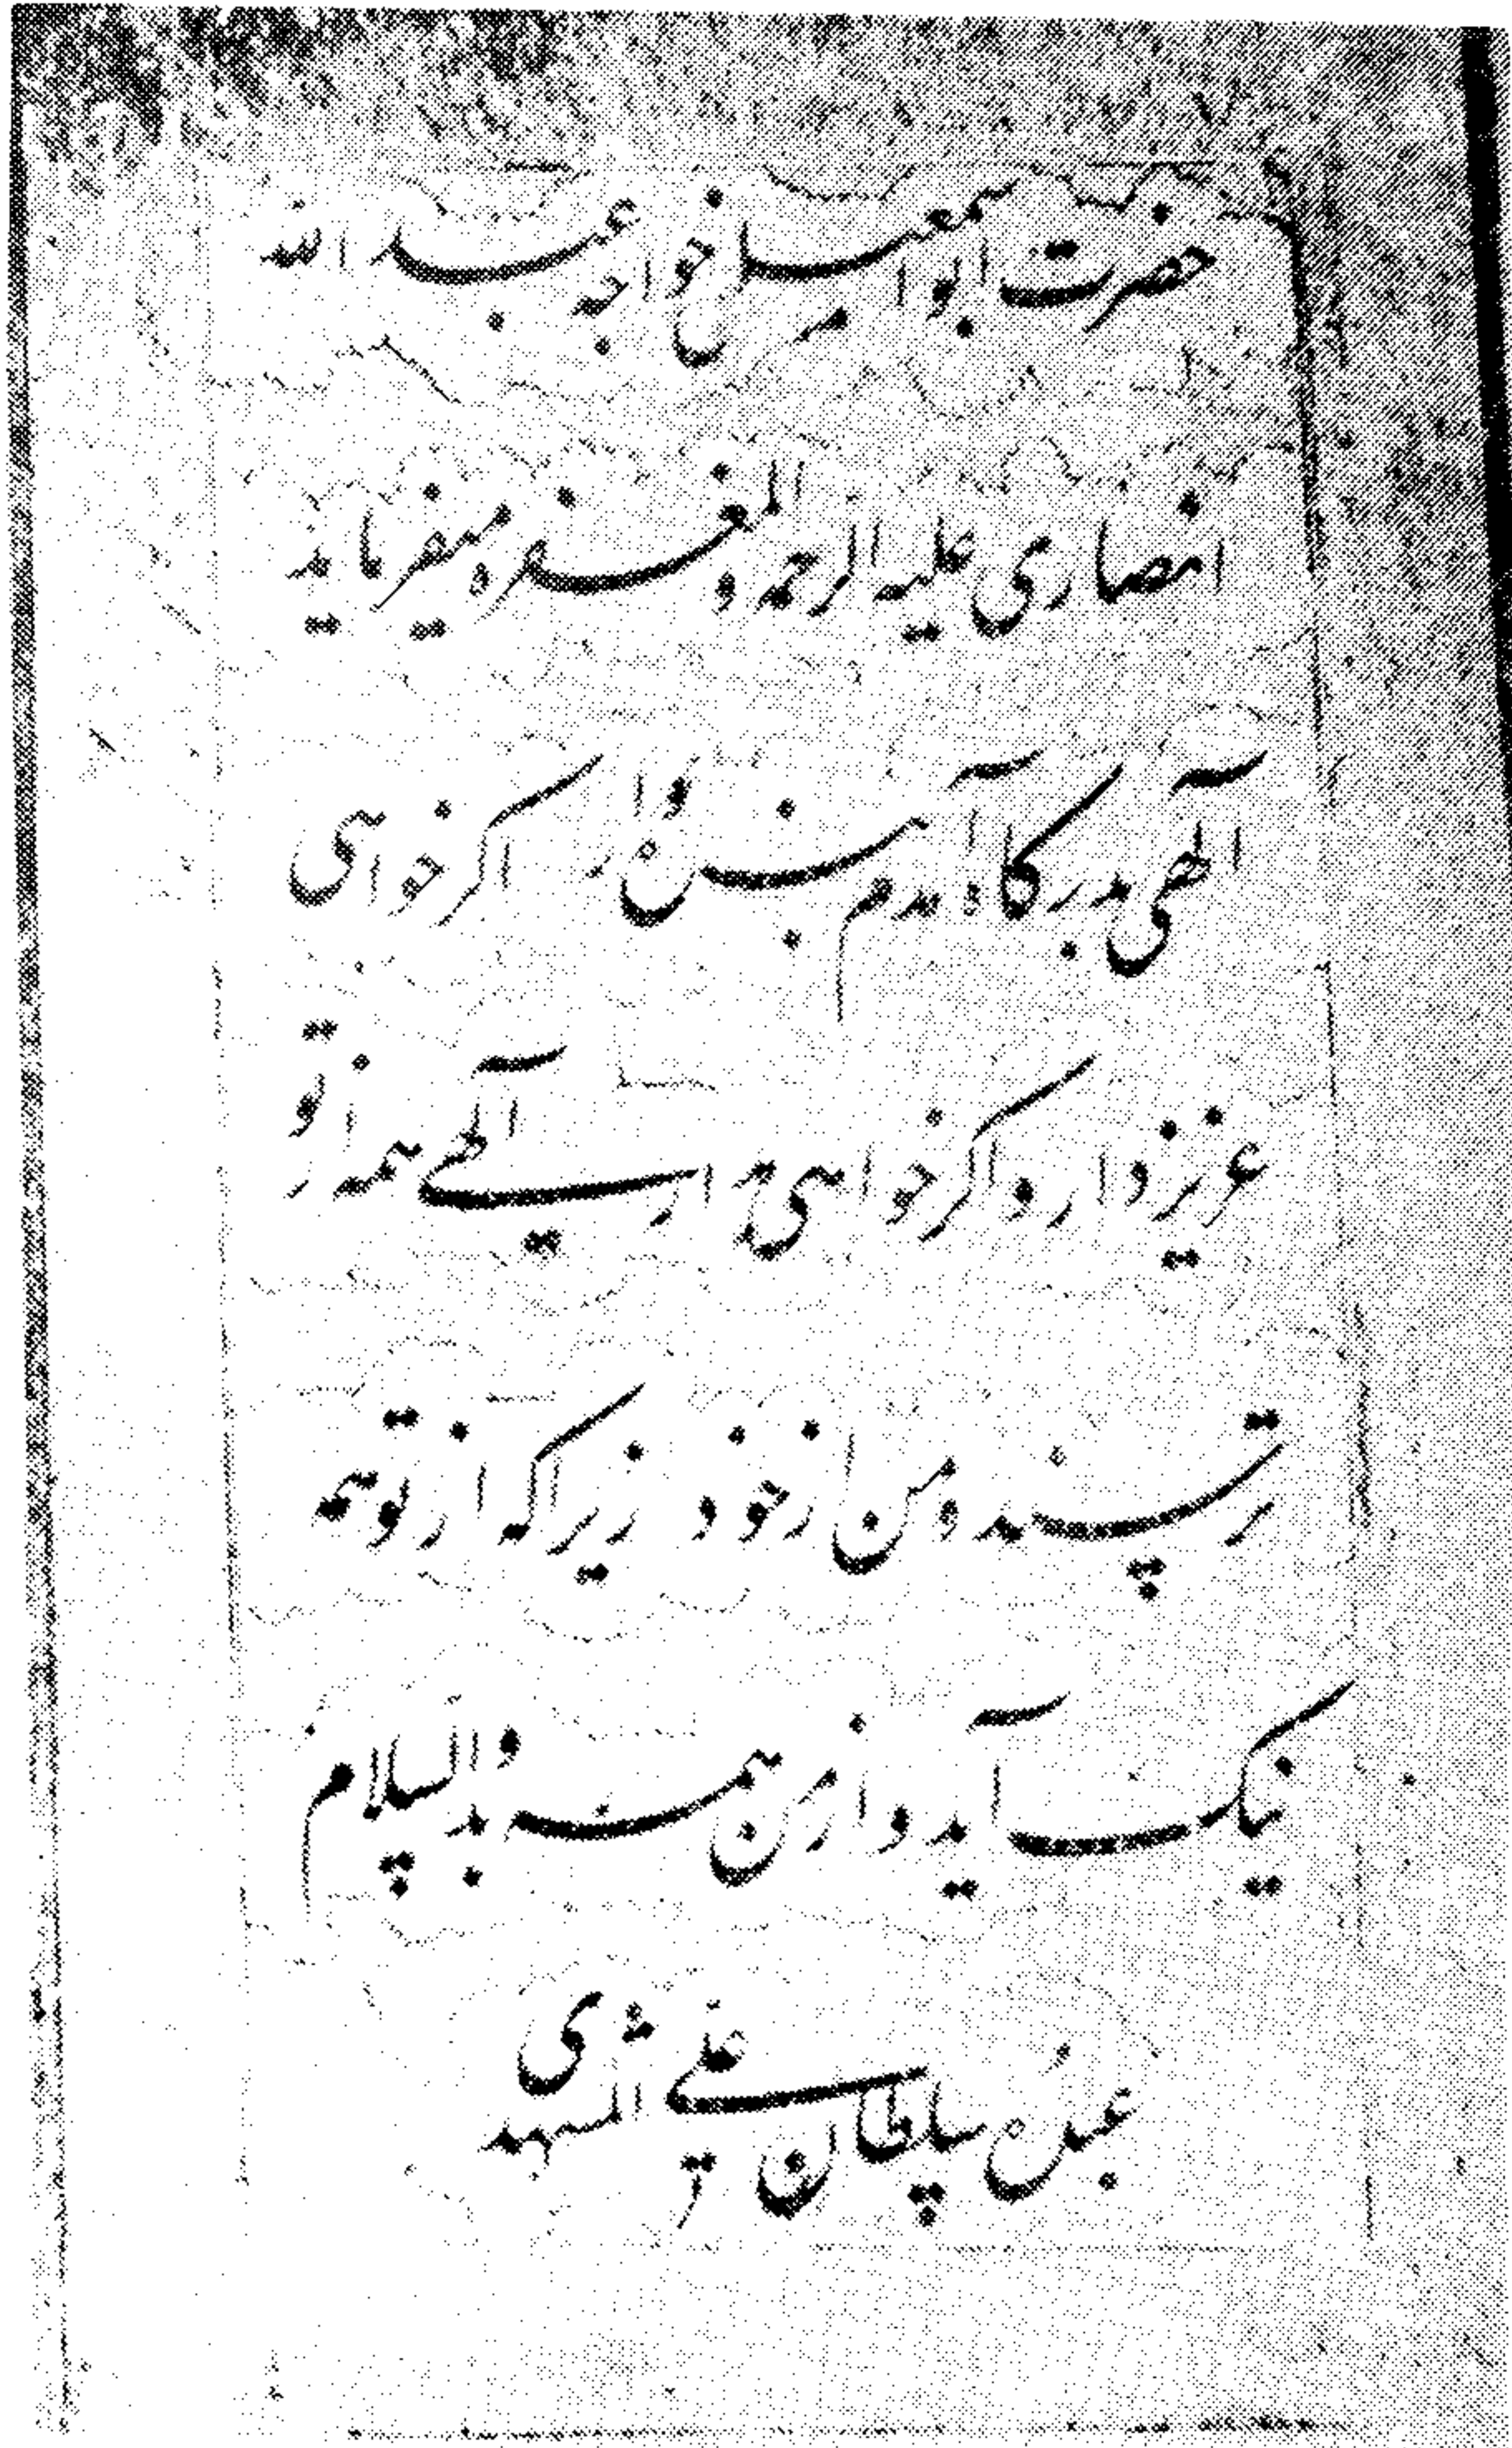 حضرت ابو اسمعیل خواجه عبد الله
انصاری علیه الرحمه و المغفره میفرماید
آلهی بدرگاه آمدم بنده وار اگر خواهی
عزیز دار و اگر خواهی خوار آلهی همه از تو
ترسند و من از خود زیرا که از تو همه
نیک آید و از من همه بد والسلام
عبده سلطان علی المشهدی